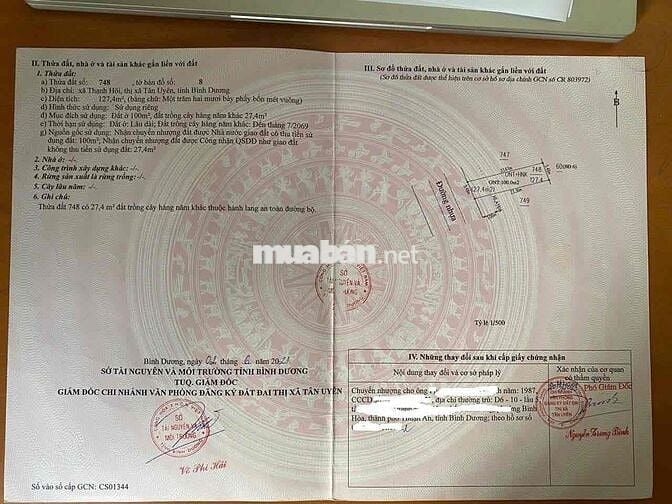 II. Thửa đất, nhà ở và tài sản khác gắn liền với đất
1. Thửa đất:
a) Thửa đất số: 748, tờ bản đồ số: 8
b) Địa chỉ: xã Thạnh Hội, thị xã Tân Uyên, tỉnh Bình Dương
c) Diện tích: 127,4m², (bằng chữ: Một trăm hai mươi bảy phẩy bốn mét vuông)
d) Hình thức sử dụng: Sử dụng riêng
đ) Mục đích sử dụng: Đất ở 100m², đất trồng cây hàng năm khác 27,4m²
e) Thời hạn sử dụng: Đất ở: Lâu dài; Đất trồng cây hàng năm khác: Đến tháng 7/2069
g) Nguồn gốc sử dụng: Nhận chuyển nhượng đất được Nhà nước giao đất có thu tiền sử
dụng đất: 100m²; Nhận chuyển nhượng đất được Công nhận QSDĐ như giao đất
không thu tiền sử dụng đất: 27,4m²
2. Nhà ở: -/-
3. Công trình xây dựng khác: -/-
4. Rừng sản xuất là rừng trồng: -/-
5. Cây lâu năm: -/-
6. Ghi chú:
Thửa đất 748 có 27,4 m² đất trồng cây hàng năm khác thuộc hành lang an toàn đường bộ.
Bình Dương, ngày tháng 6 năm 2021
SỞ TÀI NGUYÊN VÀ MÔI TRƯỜNG TỈNH BÌNH DƯƠNG
TUQ. GIÁM ĐỐC
GIÁM ĐỐC CHI NHÁNH VĂN PHÒNG ĐĂNG KÝ ĐẤT ĐAI THỊ XÃ TÂN UYÊN
SỞ
TÀI NGUYÊN VÀ
MÔI TRƯỜNG
Võ Phi Hải
Số vào sổ cấp GCN: CS01344
III. Sơ đồ thửa đất, nhà ở và tài sản khác gắn liền với đất
(Sơ đồ thửa đất được thể hiện trên cơ sở hồ sơ địa chính GCN số CR 803972)
B
747
748
ONT+HNK
127,4
ONT: 100.0m2
749
Đường nhựa
muaban.net
SỞ
TÀI NGUYÊN VÀ
MÔI TRƯỜNG
Tỷ lệ 1/500
IV. Những thay đổi sau khi cấp giấy chứng nhận
Nội dung thay đổi và cơ sở pháp lý
Xác nhận của cơ quan
có thẩm quyền
Chuyển nhượng cho ông năm: 1987,
CCCD , địa chỉ thường trú: D6 - 10 - lầu 5
Bình
Hòa, thành phố Thuận An, tỉnh Bình Dương; theo hồ sơ
Phó Giám Đốc
Nguyễn Trung Bình